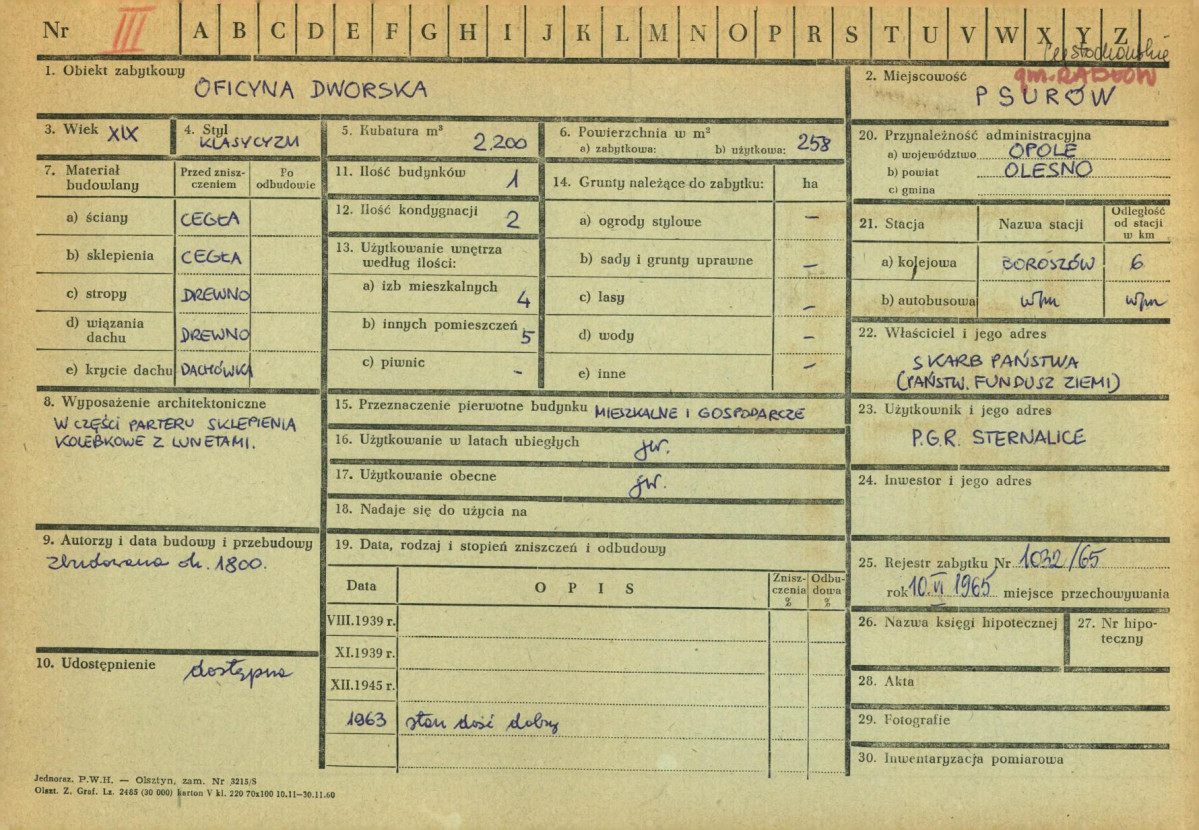 Nr III A B C D E F G H I J K L M N O P R S T U V W X Y Z
Częstochowskie
gm. RADŁÓW
1. Obiekt zabytkowy
OFICYNA DWORSKA
2. Miejscowość
PSURÓW
3. Wiek XIX
4. Styl
KLASYCYZM
5. Kubatura m³
2.200
6. Powierzchnia w m²
a) zabytkowa: b) użytkowa: 258
7. Materiał budowlany
Przed zniszczeniem
Po odbudowie
a) ściany CEGŁA
b) sklepienia CEGŁA
c) stropy DREWNO
d) wiązania dachu DREWNO
e) krycie dachu DACHÓWKA
8. Wyposażenie architektoniczne
W CZĘŚCI PARTERU SKLEPIENIA
KOLEBKOWE Z LUNETAMI.
9. Autorzy i data budowy i przebudowy
zbudowana ok. 1800.
10. Udostępnienie dostępna
11. Ilość budynków 1
12. Ilość kondygnacji 2
13. Użytkowanie wnętrza
według ilości:
a) izb mieszkalnych 4
b) innych pomieszczeń 5
c) piwnic -
14. Grunty należące do zabytku: ha
a) ogrody stylowe –
b) sady i grunty uprawne –
c) lasy –
d) wody –
e) inne –
15. Przeznaczenie pierwotne budynku MIESZKALNE I GOSPODARCZE
16. Użytkowanie w latach ubiegłych jw.
17. Użytkowanie obecne jw.
18. Nadaje się do użycia na
19. Data, rodzaj i stopień zniszczeń i odbudowy
Data OPIS Zniszczenia % Odbudowa %
VIII.1939 r.
XI.1939 r.
XII.1945 r.
1963 stan dość dobry
20. Przynależność administracyjna
a) województwo OPOLE
b) powiat OLESNO
c) gmina
21. Stacja Nazwa stacji Odległość od stacji w km
a) kolejowa BOROSZÓW 6
b) autobusowa w/m w/m
22. Właściciel i jego adres
SKARB PAŃSTWA
(PAŃSTW. FUNDUSZ ZIEMI)
23. Użytkownik i jego adres
P.G.R. STERNALICE
24. Inwestor i jego adres
25. Rejestr zabytku Nr 1032/65
rok 10.VI 1965 miejsce przechowywania
26. Nazwa księgi hipotecznej
27. Nr hipoteczny
28. Akta
29. Fotografie
30. Inwentaryzacja pomiarowa
Jednoraz. P.W.H. — Olsztyn, zam. Nr 3215/S
Olszt. Z. Graf. Lz. 2485 (30 000) karton V kl. 220 70x100 10.11—30.11.60